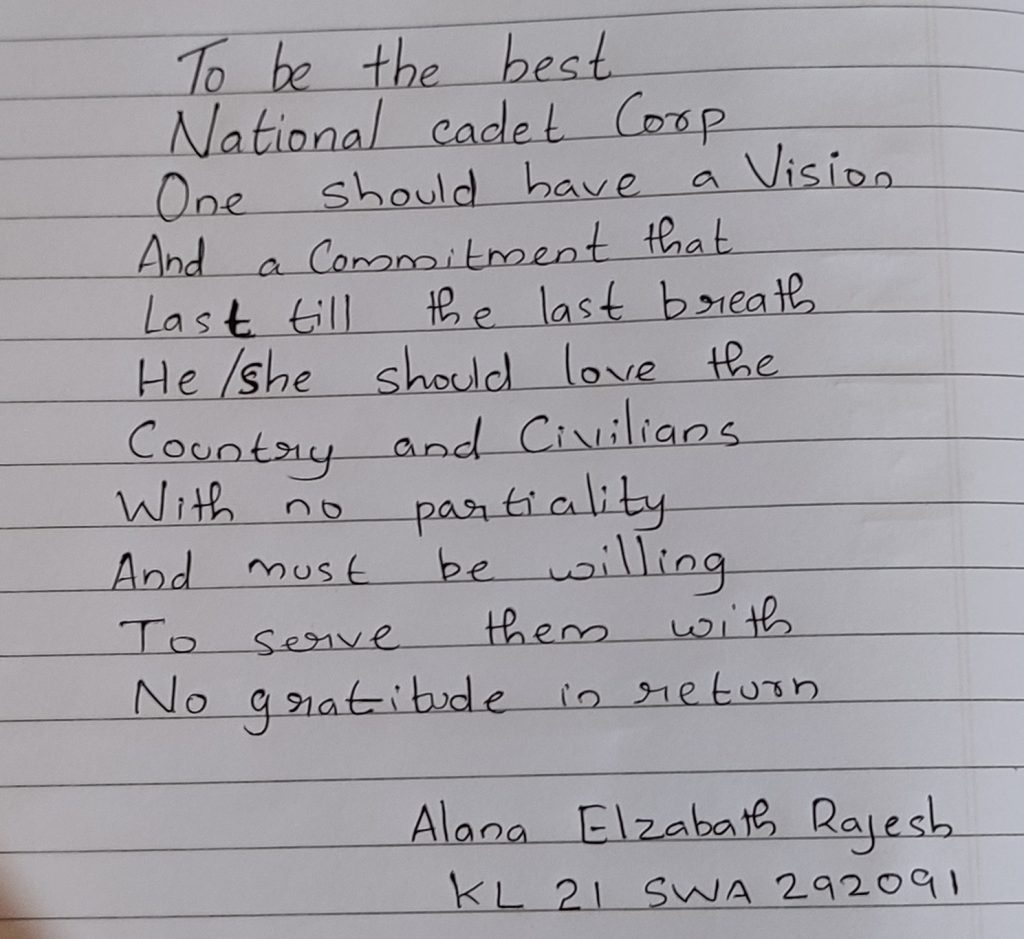 To be the best
National cadet Corp
One should have a Vision
And a Commitment that
Last till the last breath
He /she should love the
Country and Civilians
With no partiality
And must be willing
To serve them with
No gratitude in return
Alana Elzabath Rajesh
KL 21 SWA 292091